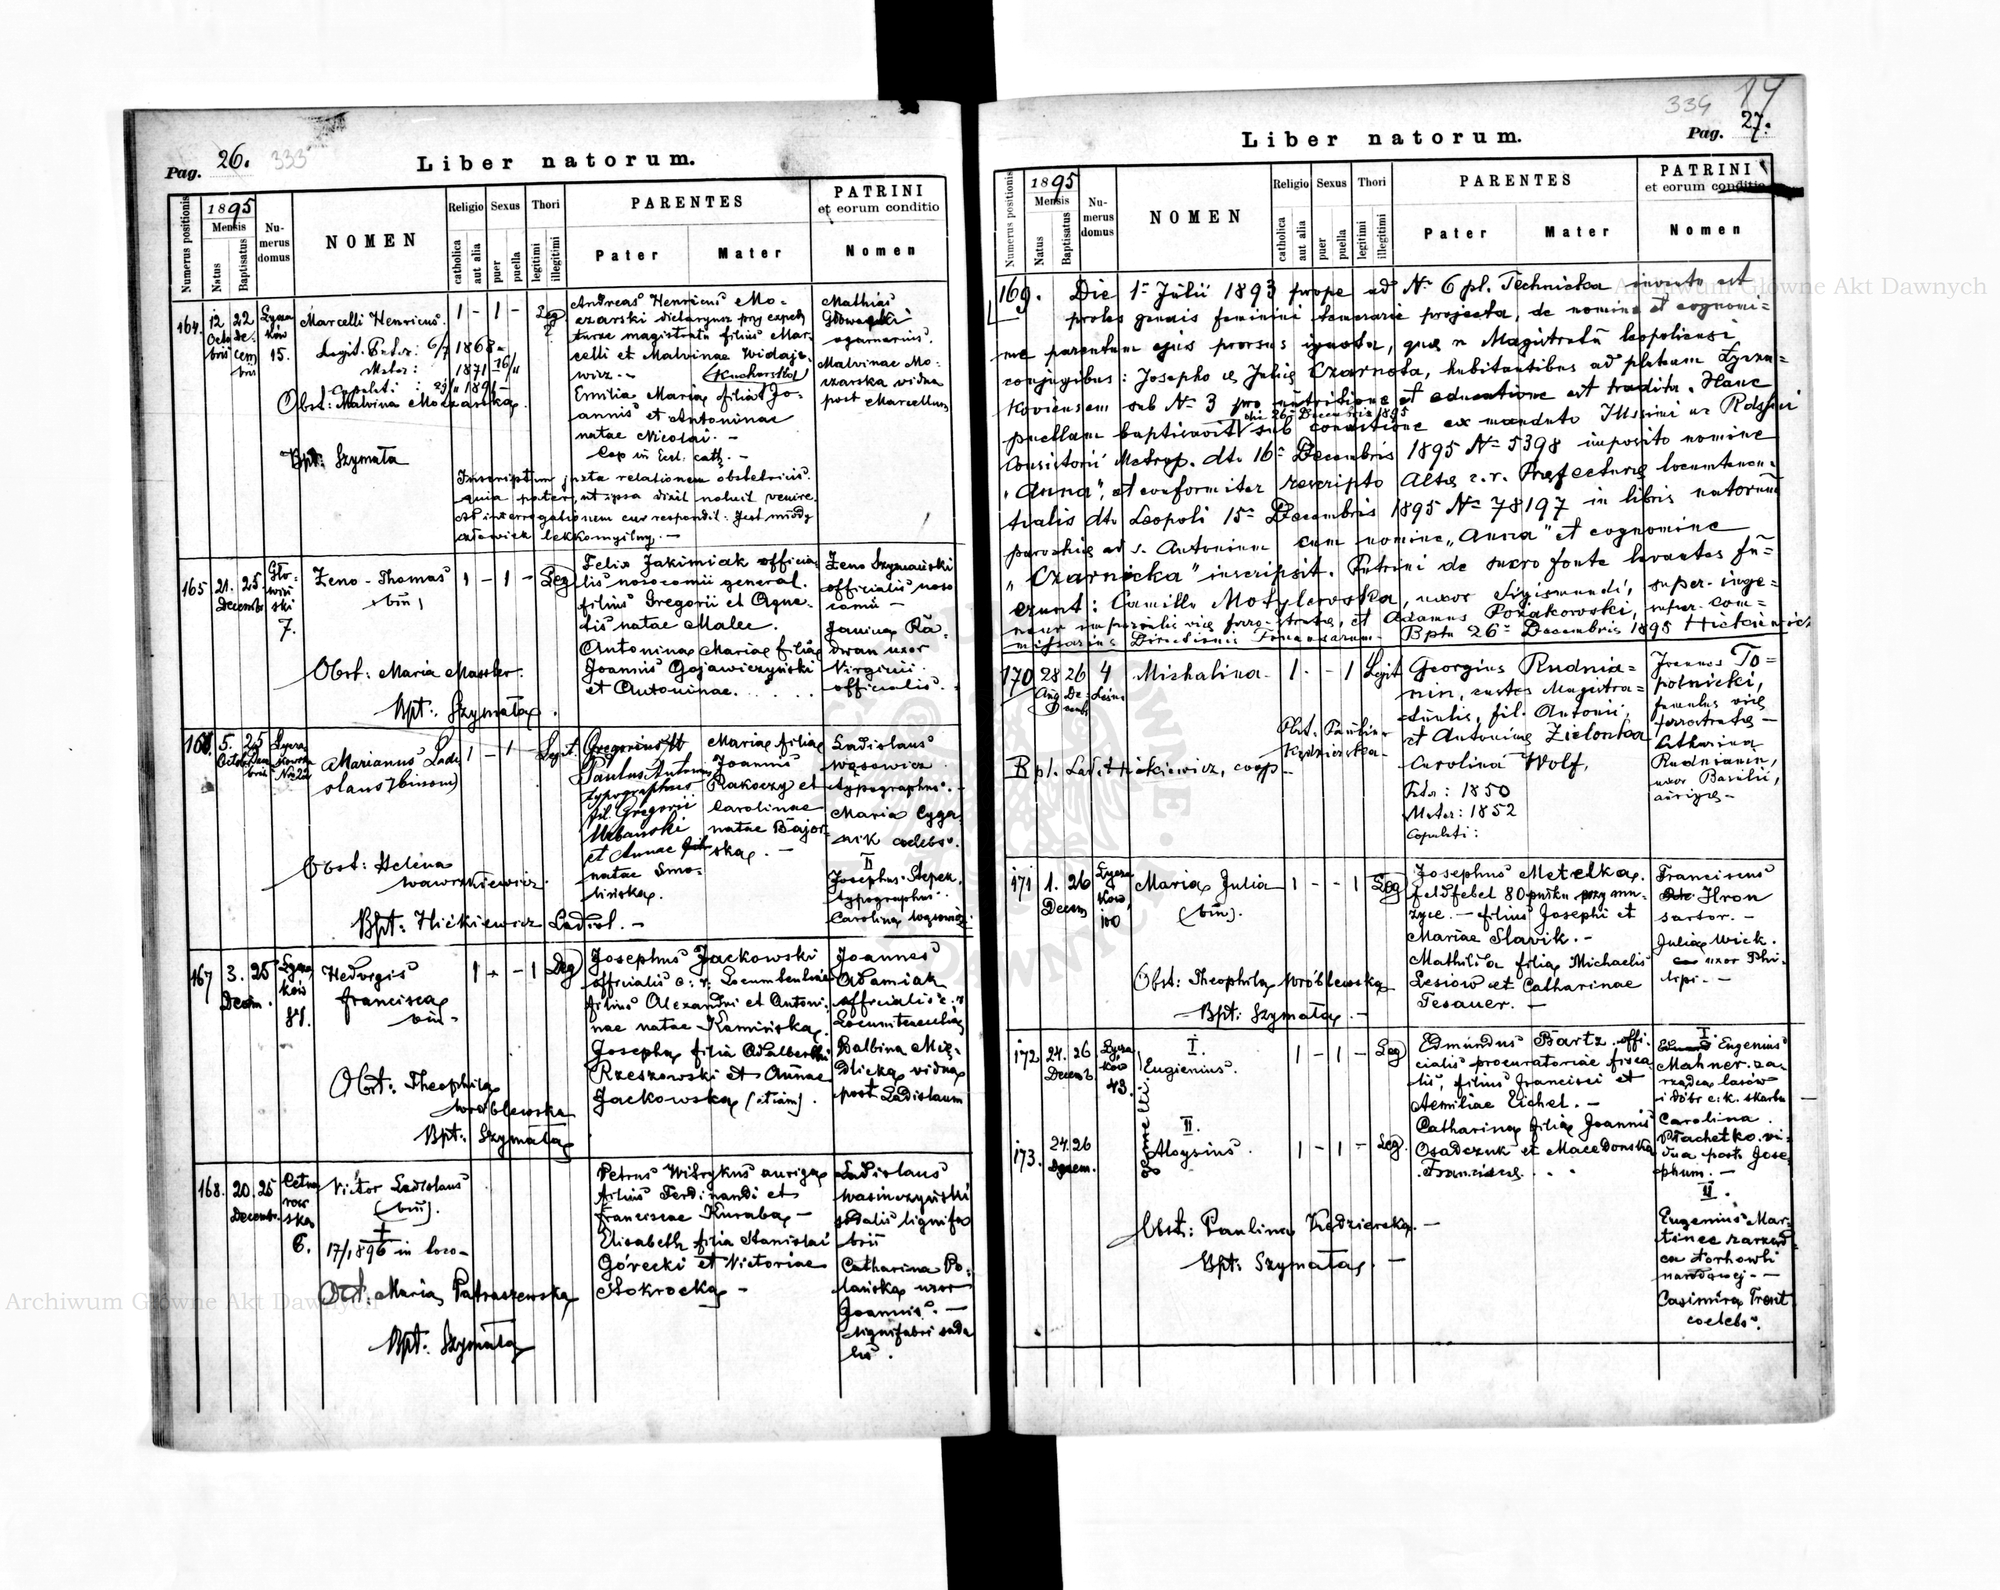 Pag. 26. 333
Liber natorum.
Numerus positionis
1895
Mensis
Natus
Baptisatus
Numerus domus
NOMEN
Religio
catholica
aut alia
Sexus
puer
puella
Thori
legitimi
illegitimi
PARENTES
Pater
Mater
PATRINI
et eorum conditio
Nomen
164. 12 Octobris 22 Decembris Łyczaków 15.
Marcelli Henricus.
Legit. Pater: 6/7 1868
Mater: 1871 16/11
Copulati: 1891
Obst: Malvina Moczarska.
Bpt: Szymała
1 - 1 - Leg
Andreas Henricus Mo-
czarski dietaryusz przy exped
turze magistratu filius Mar-
celli et Malvinae Widaje-
wicz. -
Emilia Maria filia Jo-
annis et Antoninae
natae Nicolai. -
Cop in Eccl. cath. -
Mathias
Głowacki
Malvinae Mo-
czarska vidua
post Marcellum
Inscriptum juxta relationem obstetricis
quia pater, ut ipsa dixit noluit venire.
Ad interrogationem cur respondit: Jest młody
człowiek lekkomyślny. -
165 21. 25. Decembr
7.
Zeno - Thomas
bin
Obst: Maria Massler.
Bpt: Szymała.
1 - 1 - Leg
Felix Jakimiak officia
lis nosocomii general.
filius Gregorii et Agne-
tis natae Malec.
Antonina Maria filia
Joannis Gojawiczyński
et Antoninae.
Zeno Szymański
officialis noso
comii -
Janina Ra-
dwan uxor
Virginii
officialis.
166. 5. Octob 25 Decembris Łyczakowska No 22
Marianus Ladi
slaus (binom)
Obst: Helena
Wawrzkiewicz.
Bpt: Hićkiewicz Ladisl. -
1 - 1 - Legit.
Gregorius
Paulus Antonius
typographus
fil. Gregorii
Urbański
et Annae
natae Smo-
lińska.
Maria filia
Joannis
Rakoczy et
Carolinae
natae Bajor-
ska. -
Ladislaus
Wąsowicz
typographus. -
Maria Cyga-
nik coelebs.
II
Josephus Stepek.
typographus.
Carolina Wąsowicz
167 3. 25 Decem. Łyczaków 87.
Hedvigis
Francisca
bin.
Obst: Theophila
Wróblewska
Bpt: Szymała
1 - - 1 Leg
Josephus Jackowski
officialis c: r: Locumtenentiae
filius Alexandri et Antoni-
nae natae Kamińska.
Josepha filia Adalberti
Rzeszowski et Annae
Jackowska (etiam).
Joannes
Adamiak
officialis c. r
Locumtenentiae
Balbina Mię-
dlicka vidua
post Ladislaum
168. 20. 25 Decembr. Cetnarowska 6.
Victor Ladislaus
(bin).
†
17/1 896 in loco -
Obst: Maria Patraszewska
Bpt: Szymała
Petrus Witrykus auriga
filius Ferdinandi et
Franciscae Kuraba -
Elisabeth filia Stanislai
Górecki et Victoriae
Sokrocka -
Ladislaus
Wasinczyński
sodalis lignifa
brii
Catharina Po-
lańska uxor
Joannis. -
lignifabri soda
lis.
334 14
Liber natorum.
Pag. 27.
Numerus positionis
1895
Mensis
Natus
Baptisatus
Numerus domus
NOMEN
Religio
catholica
aut alia
Sexus
puer
puella
Thori
legitimi
illegitimi
PARENTES
Pater
Mater
PATRINI
et eorum conditio
Nomen
169. Die 1a Julii 1893 prope ad No 6 pl. Technicka inventa est
proles generis feminini temerarie projecta, de nomine et cognomi-
ne parentum ejus prorsus ignota, quae a Magistratu leopoliensi
conjugibus: Josepho et Julia Czarnota, habitantibus ad plateam Łycza-
koviensem sub No 3 pro nutritione et educatione est tradita. Hanc
puellam baptisavit die 26a Decembris 1895 sub conditione ex mandato Illssimi ac Rdssimi
Consistorii Metrop. dto 16a Decembris 1895 No 5398 imposito nomine
"Anna", et conformiter rescripto Altae c. r. Praefecturae locumtenen-
tialis dto Leopoli 15a Decembris 1895 No 78197 in libris natorum
parochiae ad s. Antonium cum nomine "Anna" et cognomine
"Czarnecka" inscripsit. Patrini de sacro fonte levantes fu-
erunt: Camilla Motylewska, uxor Sigismundi, super. inge-
neur imperialis viae ferro-stratae, et Adamus Pozakowski, super. com-
missarius Directionis Financiarum. Bptu 26a Decembris 1895 Hićkiewicz
170 28 Aug 26 Decemb 4
Michalina
1 - - 1 Legit
Obst. Paulina
Kędzierska -
Bpt. Lad. Hićkiewicz, coop -
Georgius Rudnia-
nin, custos Magistra-
tualis, fil. Antonii,
et Antonina Zielonka
Carolina Wolf,
Pater: 1850
Mater: 1852
Copulati:
Joannes To-
polnicki,
famulus viae
ferrostratae -
Catharina
Rudnianin,
uxor Basilii,
aurigae -
171 1. 26 Decem Łyczaków 100
Maria Julia
(bin).
Obst: Theophila Wróblewska
Bpt: Szymała. -
1 - - 1 Leg
Josephus Metelka.
feldfebel 80 pułku przy mu-
zyce. - filius Josephi et
Mariae Slavik. -
Mathilda filia Michaelis
Lesiow et Catharinae
Tesauer. -
Franciscus
Hron
sartor. -
Julia Wick.
uxor Phi-
lippi. -
172 24. 26 Decemb Łyczaków 43.
I.
Eugenius.
gemelli
1 - 1 - Leg
Edmundus Bartz. offi-
cialis procuratoriae fisca
lis, filius Francisci et
Aemiliae Eichel. -
Catharina filia Joannis
Osadczuk et Macedonska
Francisca.
I.
Eugenius
Mahner. za-
rządca lasów
i dóbr c. k. skarbu
Carolina
Płachetko. vi-
dua post. Jose-
phum. -
173. 24. 26 Decem.
II.
Aloysius.
1 - 1 - Leg.
II.
Eugenius Mar-
tinec zarząd-
ca torhowli
narodowej. -
Casimira Trent
coelebs.
Obst: Paulina Kędzierska. -
Bpt: Szymała. -
Archiwum Główne Akt Dawnych
Archiwum Główne Akt Dawnych